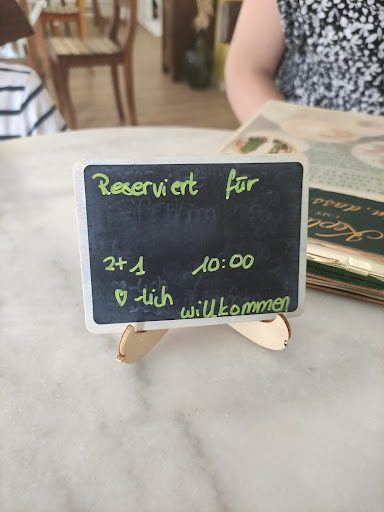 Reserviert für
2+1 10:00
♡-lich willkommen